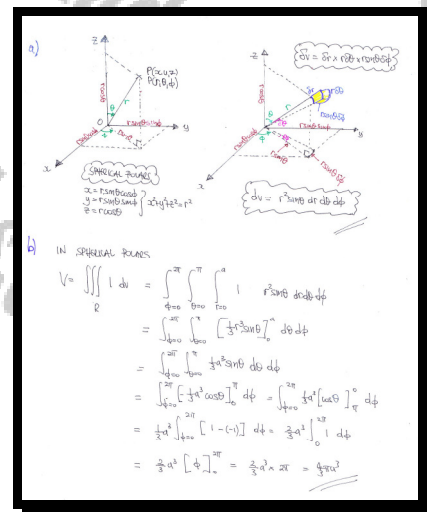 a)
z
P(x,y,z)
P(r,θ,ϕ)
rcosθ
θ
r
O
y
rsinθ
x
SPHERICAL POLARS
x = rsinθcosϕ
y = rsinθsinϕ
z = rcosθ
x²+y²+z² = r²
δv = δr × rδθ × rsinθδϕ
z
δr
rδθ
rcosθ
r
rsinθδϕ
θ
y
rsinθ
rsinθδϕ
x
dv = r²sinθ dr dθ dϕ
b) IN SPHERICAL POLARS
V = ∭_R 1 dv = ∫_{ϕ=0}^{2π} ∫_{θ=0}^{π} ∫_{r=0}^{a} 1 r²sinθ dr dθ dϕ
= ∫_{ϕ=0}^{2π} ∫_{θ=0}^{π} [⅓r³sinθ]_0^a dθ dϕ
= ∫_{ϕ=0}^{2π} ∫_{θ=0}^{π} ⅓a³sinθ dθ dϕ
= ∫_{ϕ=0}^{2π} [-⅓a³cosθ]_0^π dϕ = ∫_{ϕ=0}^{2π} ⅓a³[cosθ]_π^0 dϕ
= ⅓a³ ∫_{ϕ=0}^{2π} [1-(-1)] dϕ = ⅔a³ ∫_0^{2π} 1 dϕ
= ⅔a³ [ϕ]_0^{2π} = ⅔a³ × 2π = 4/3 πa³